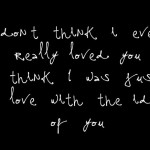 don't think i eve
really loved you
think i was jus
love with the id
of you